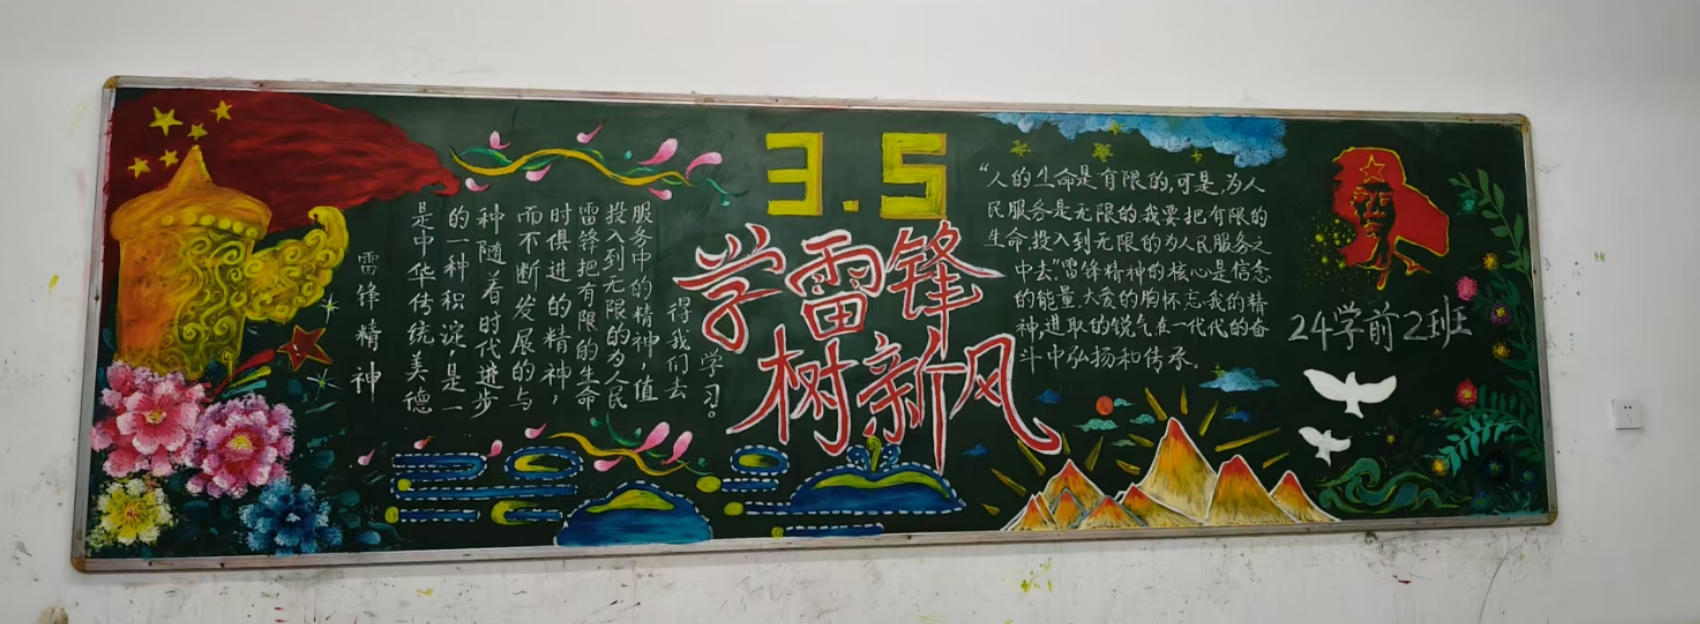 雷锋精神
是中华传统美德
的一种积淀,是一
种随着时代进步
而不断发展的与
时俱进的精神,
雷锋把有限的生命
投入到无限的为人民
服务中的精神,值
得我们去
学习。
3.5
学雷锋
树新风
“人的生命是有限的,可是,为人
民服务是无限的,我要把有限的
生命,投入到无限的为人民服务之
中去”雷锋精神的核心是信念
的能量.大爱的胸怀.忘我的精
神,进取的锐气在一代代的奋
斗中弘扬和传承.
24学前2班